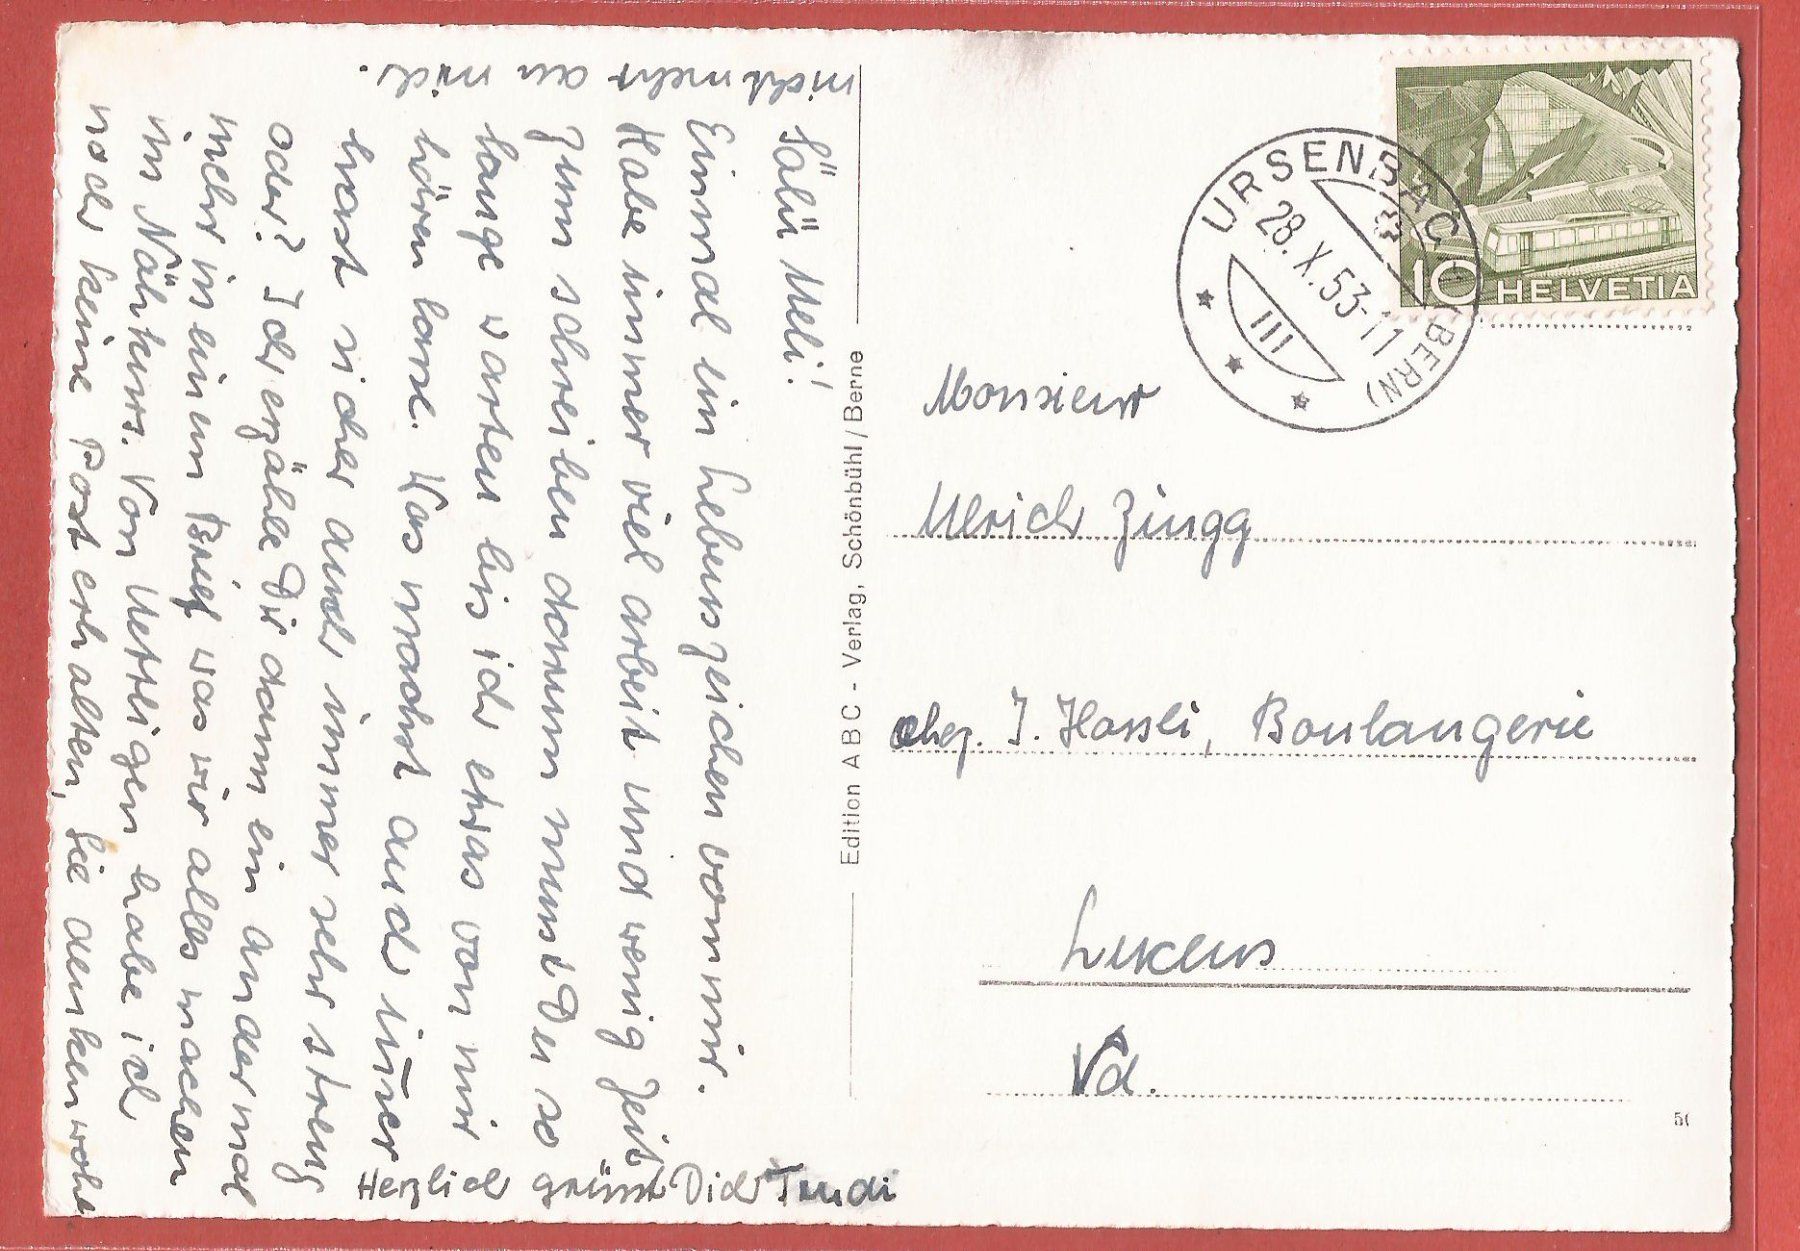 Sälü Ueli!
Einmal ein Lebenszeichen von mir.
Habe immer viel arbeit und wenig Zeit
zum schreiben darum must Du so
lange warten bis ich etwas von mir
hören lasse. Was machst auch im̄er
hast sicher auch immer sehr streng
oder? Ich erzähle Dir dann ein andermal
mehr in einem Brief was wir alles machen
im Nähkurs. Von Uettligen habe ich
noch keine Post erhalten, Sie denken wohl
nicht mehr an mich.
Herzlich grüsst Dich Trudi
Edition ABC - Verlag, Schönbühl / Berne
URSENBACH (BERN)
28.X.53-11
III
10 HELVETIA
Monsieur
Ulrich Zingg
chez. J. Hossli, Boulangerie
Lucens
Vd.